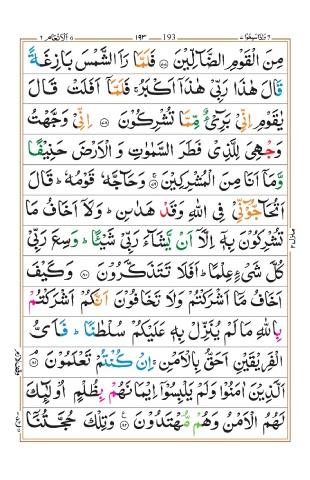 وَاِذَا سَمِعُوْا ٧ 193 ١٩٣ اَلْاَنْعَام ٦
مِنَ الْقَوْمِ الضَّآلِّيْنَ ۞ فَلَمَّا رَاَ الشَّمْسَ بَازِغَةً
قَالَ هٰذَا رَبِّيْ هٰذَآ اَكْبَرُ ۚ فَلَمَّآ اَفَلَتْ قَالَ
يٰقَوْمِ اِنِّيْ بَرِيْٓءٌ مِّمَّا تُشْرِكُوْنَ ۞ اِنِّيْ وَجَّهْتُ
وَجْهِيَ لِلَّذِيْ فَطَرَ السَّمٰوٰتِ وَالْاَرْضَ حَنِيْفًا
وَّمَآ اَنَا مِنَ الْمُشْرِكِيْنَ ۞ وَحَآجَّهٗ قَوْمُهٗ ۗ قَالَ
اَتُحَآجُّوْٓنِّيْ فِي اللّٰهِ وَقَدْ هَدٰىنِ ۗ وَلَآ اَخَافُ مَا
تُشْرِكُوْنَ بِهٖٓ اِلَّآ اَنْ يَّشَآءَ رَبِّيْ شَيْـًٔا ۗ وَسِعَ رَبِّيْ
كُلَّ شَيْءٍ عِلْمًا ۗ اَفَلَا تَتَذَكَّرُوْنَ ۞ وَكَيْفَ
اَخَافُ مَآ اَشْرَكْتُمْ وَلَا تَخَافُوْنَ اَنَّكُمْ اَشْرَكْتُمْ
بِاللّٰهِ مَا لَمْ يُنَزِّلْ بِهٖ عَلَيْكُمْ سُلْطٰنًا ۗ فَاَيُّ
الْفَرِيْقَيْنِ اَحَقُّ بِالْاَمْنِ ۚ اِنْ كُنْتُمْ تَعْلَمُوْنَ ۞
اَلَّذِيْنَ اٰمَنُوْا وَلَمْ يَلْبِسُوْٓا اِيْمَانَهُمْ بِظُلْمٍ اُولٰٓئِكَ
لَهُمُ الْاَمْنُ وَهُمْ مُّهْتَدُوْنَ ۞ وَتِلْكَ حُجَّتُنَآ